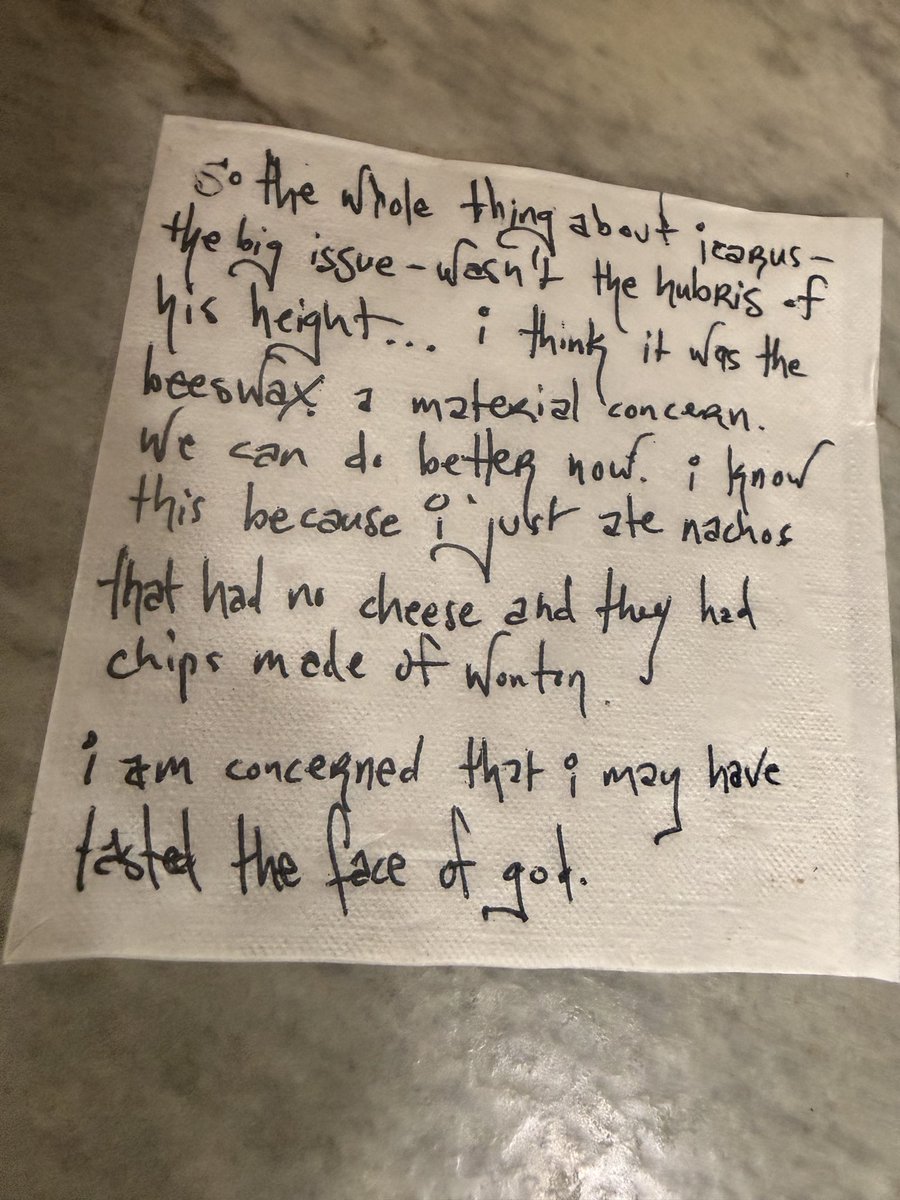 So the whole thing about icarus-
the big issue - wasn't the hubris of
his height... i think it was the
beeswax. a material concern.
We can do better now. i know
this because i just ate nachos
that had no cheese and they had
chips made of wonton.
i am concerned that i may have
tasted the face of god.